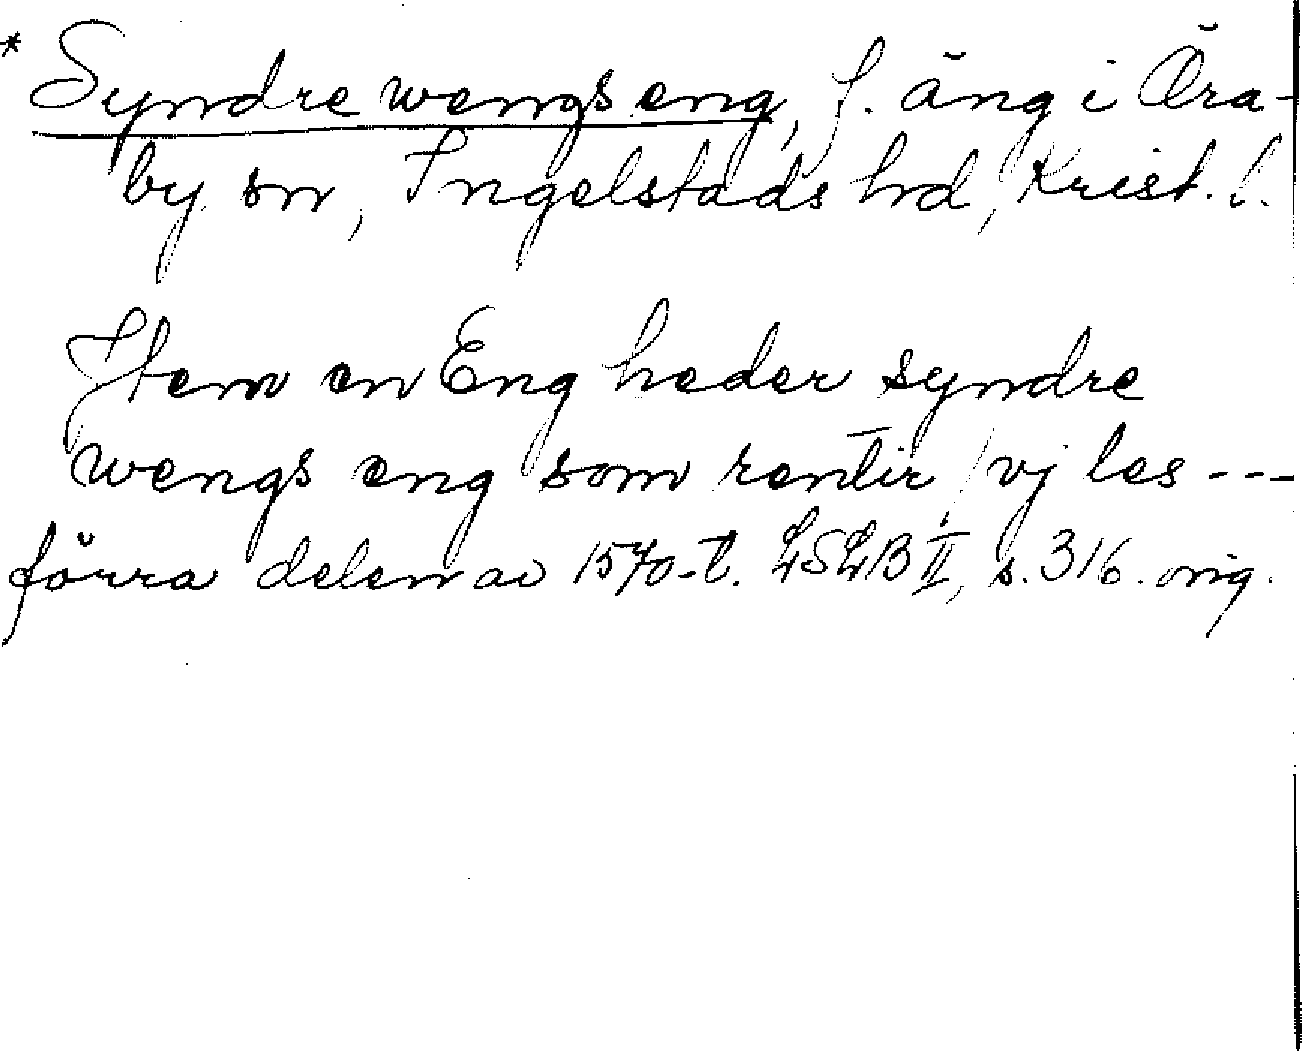 * Syndre wengs eng, f. äng i Öra-
by sn, Ingelstads hd, Krist. l.
Jtem en Eng heder syndre
wengs eng som rentir / vj les ---
förra delen av 1570-t. LSLB II, s. 316. orig.